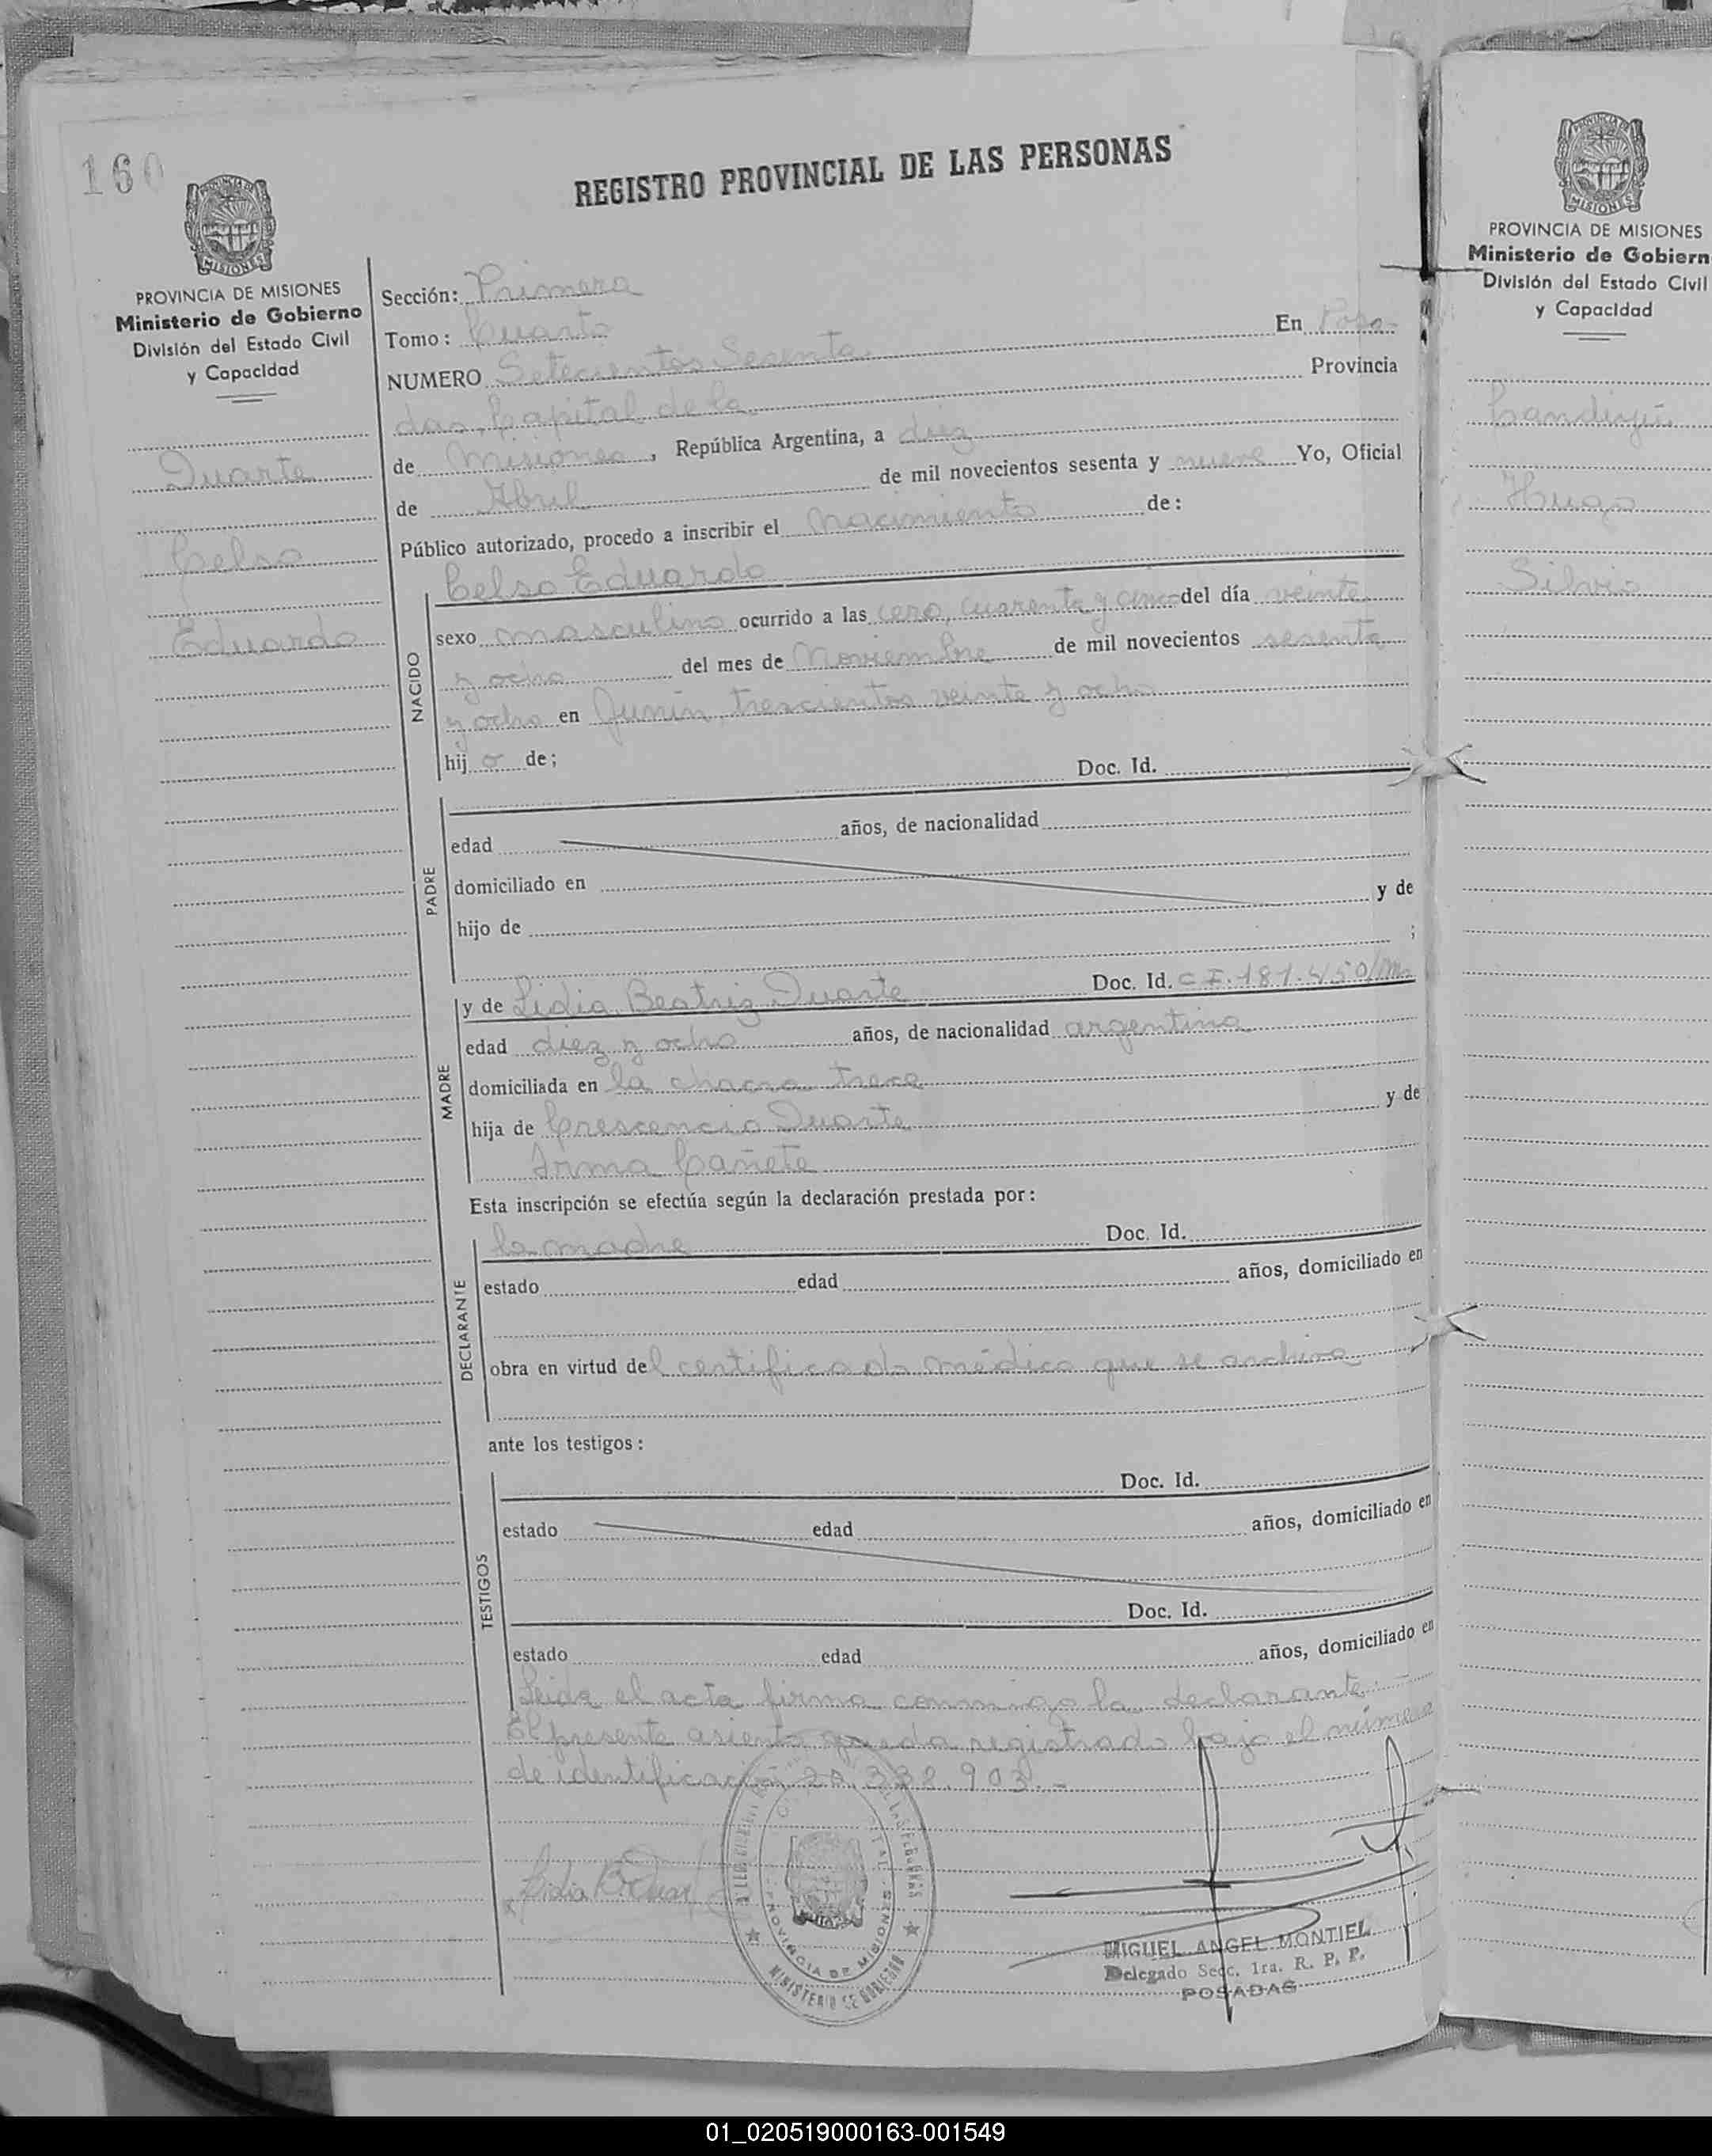 160
REGISTRO PROVINCIAL DE LAS PERSONAS
PROVINCIA DE MISIONES
Ministerio de Gobierno
División del Estado Civil
y Capacidad
Duarte
Celso
Eduardo
Sección: Primera
Tomo: Cuarto
NUMERO Setecientos Sesenta En Posa-
das, Capital de la Provincia
de Misiones, República Argentina, a diez
de Abril de mil novecientos sesenta y nueve Yo, Oficial
Público autorizado, procedo a inscribir el nacimiento de:
Celso Eduardo
NACIDO
sexo masculino ocurrido a las cero, cuarenta y cinco del día veinte
y ocho del mes de Noviembre de mil novecientos sesenta
y ocho en Junín, trescientos veinte y ocho
hijo de;
Doc. Id.
PADRE
edad años, de nacionalidad
domiciliado en
hijo de y de
;
MADRE
y de Lidia Beatriz Duarte Doc. Id. C I. 181.450/Ms
edad diez y ocho años, de nacionalidad argentina
domiciliada en la chacra trece
hija de Crescencio Duarte y de
Irma Cañete
Esta inscripción se efectúa según la declaración prestada por:
DECLARANTE
la madre Doc. Id.
estado edad años, domiciliado en
obra en virtud del certificado médico que se archiva
ante los testigos:
TESTIGOS
Doc. Id.
estado edad años, domiciliado en
Doc. Id.
estado edad años, domiciliado en
Leida el acta firma conmigo la declarante.
El presente asiento queda registrado bajo el número
de identificación 20.338.903.-
Lidia B Duarte
PROVINCIA DE MISIONES
MINISTERIO DE GOBIERNO
MIGUEL ANGEL MONTIEL
Delegado Secc. 1ra. R. P. P.
POSADAS
PROVINCIA DE MISIONES
Ministerio de Gobiern
División del Estado Civil
y Capacidad
Hugo
Silvio
01_020519000163-001549